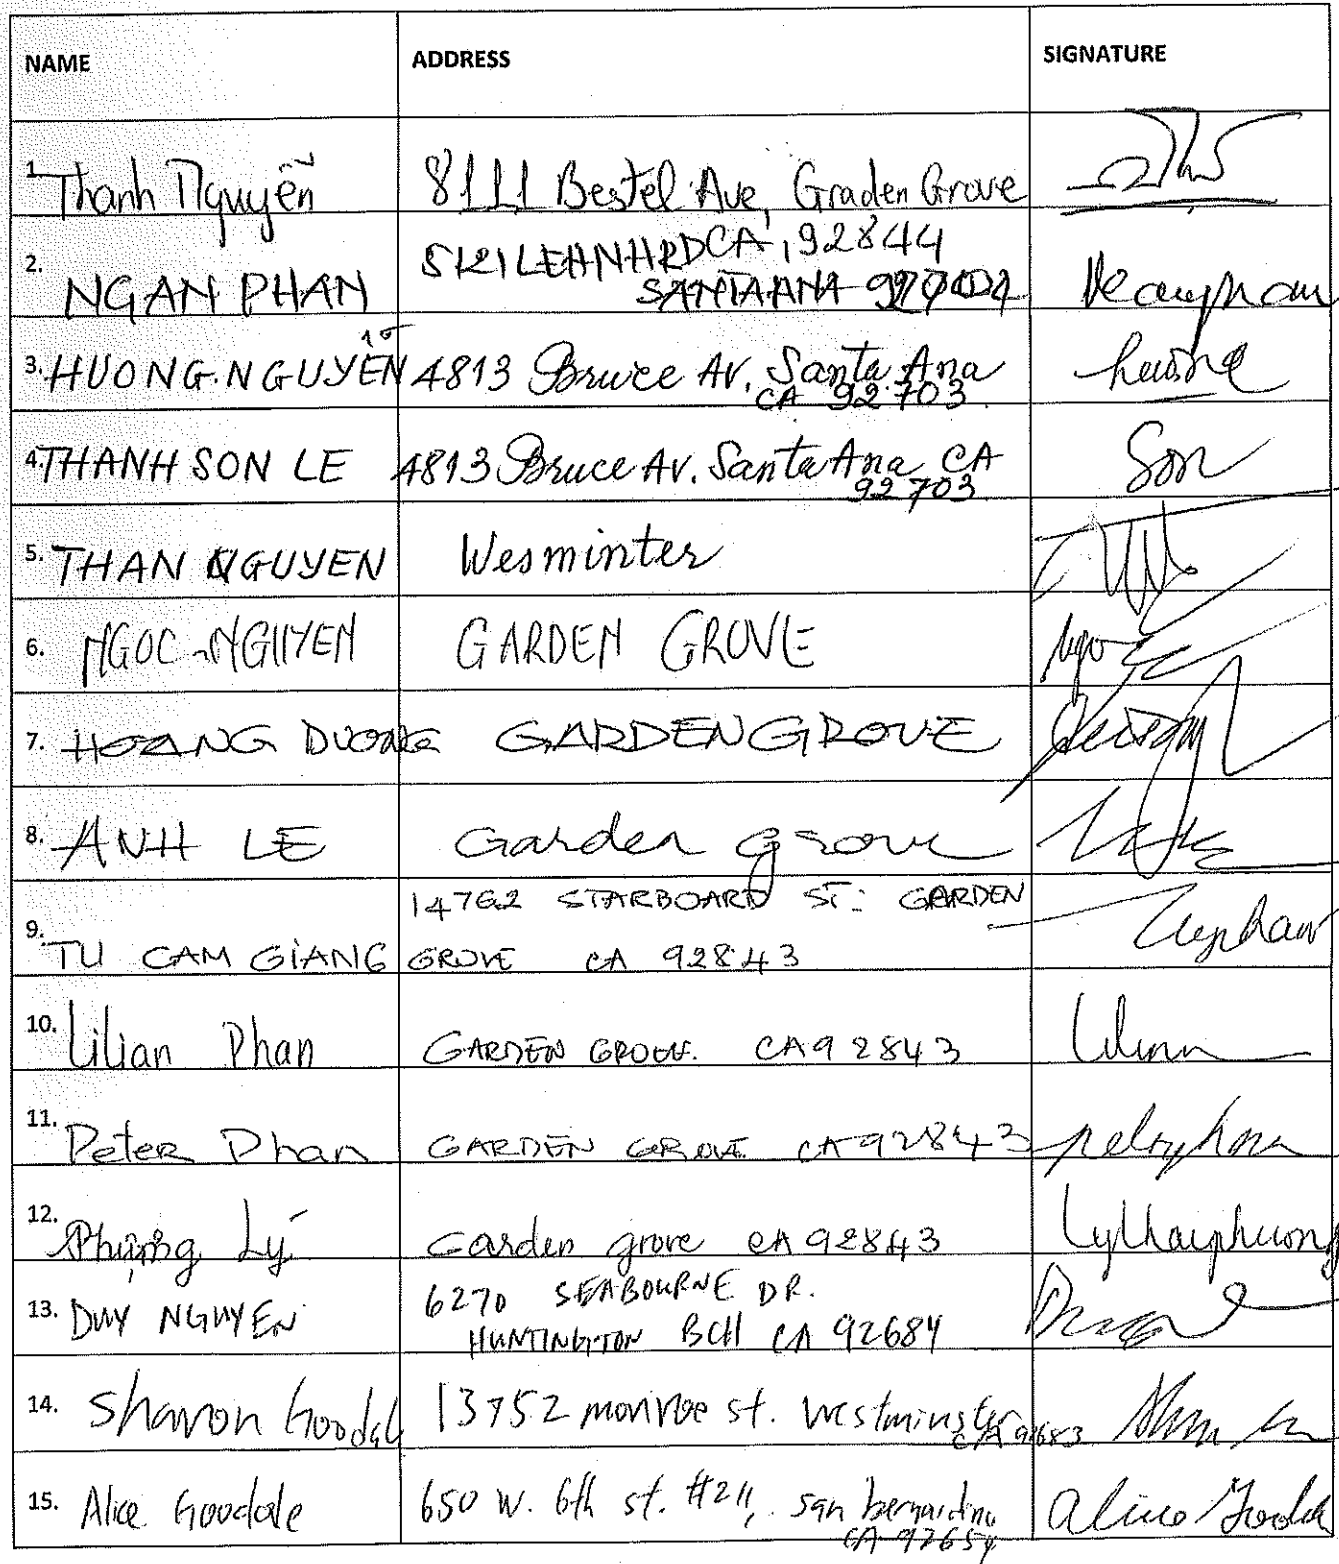 NAME ADDRESS SIGNATURE
1. Thanh Nguyễn 8111 Bestel Ave, Graden Grove
CA, 92844
2. NGAN PHAN
SANTA ANA
3. HUONG.NGUYỄN 4813 Bruce AV. Santa Ana
CA 92703
4. THANH SON LE 4813 Bruce AV. Santa Ana CA Son
92703
5. THAN NGUYEN Wesminter
6. NGOC NGUYEN GARDEN GROVE
7. HOANG DUONG GARDEN GROVE
8. ANH LE Garden grove
14762 STARBOARD ST: GARDEN
9. TU CAM GIANG GROVE CA 92843
10. Lilian Phan GARDEN CA 92843
11. Peter Phan GARDEN GROVE CA 92843
12. Phượng Lý Garden grove CA 92843 Lythaiphuong
6270 SEABOURNE DR.
13. DUY NGUYEN HUNTINGTON BCH CA 92684
14. Sharon Goodale 13752 monroe st. westminster
CA 92683
15. Alice Goodale 650 W. 6th st. #211, san bernardino
CA 92654